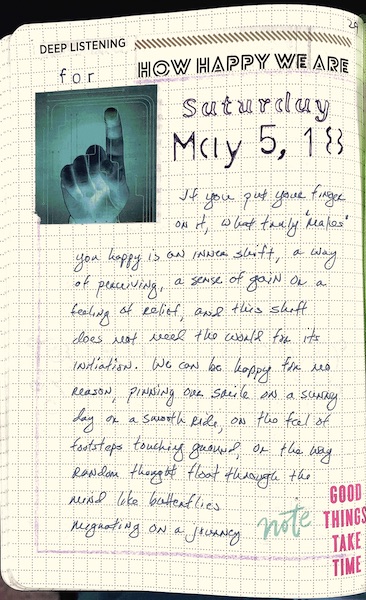 29
DEEP LISTENING
for
HOW HAPPY WE ARE
Saturday
May 5, 18
If you put your finger
on it, what truly "makes"
you happy is an inner shift, a way
of perceiving, a sense of gain or a
feeling of relief, and this shift
does not need the world for its
initiation. We can be happy for no
reason, pinning our smile on a sunny
day or a smooth ride, on the feel of
footsteps touching ground, or the way
random thought float through the
mind like butterflies
migrating on a journey
note
GOOD
THINGS
TAKE
TIME